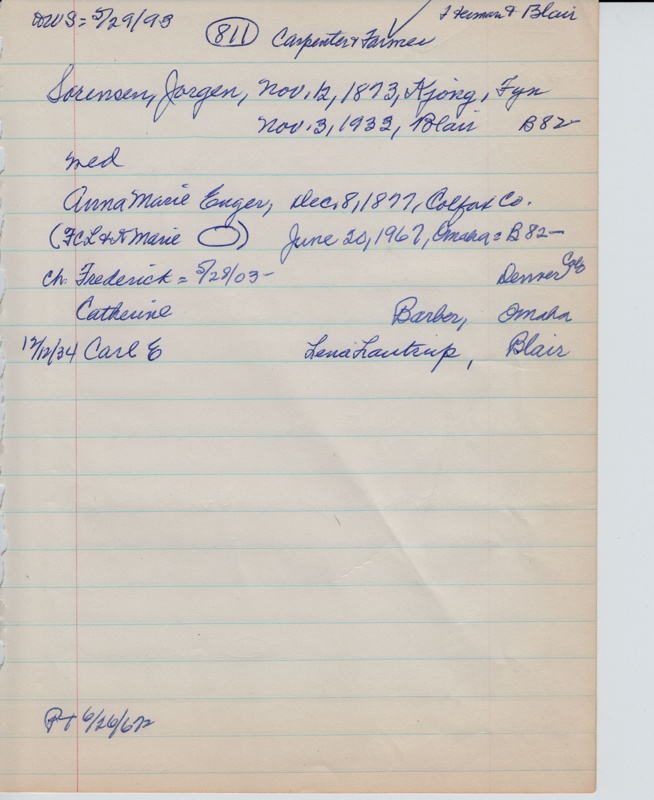 DWS = 5/29/93
811
Carpenter & Farmer
Herman & Blair
Sorensen, Jorgen, Nov. 12, 1873, Kjong, Fyn
Nov. 3, 1932, Blair B82
med
Anna Marie Enger, Dec. 8, 1877, Colfax Co.
(FCL & A Marie ) June 20, 1967, Omaha = B82
ch. Frederick = 5/28/03 - Denver Colo
Catherine Barber, Omaha
12/12/34 Carl E Lena Lautrup, Blair
PT 6/26/67